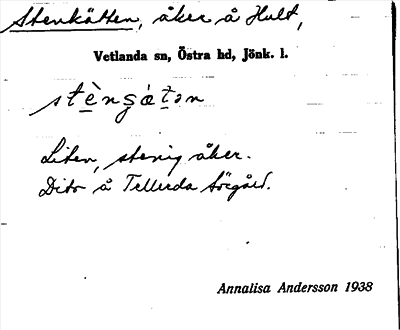 Stenkätten, åker å Hult,
Vetlanda sn, Östra hd, Jönk. l.
Liten, stenig åker.
Dito å Tellerda Sörgård.
Annalisa Andersson 1938